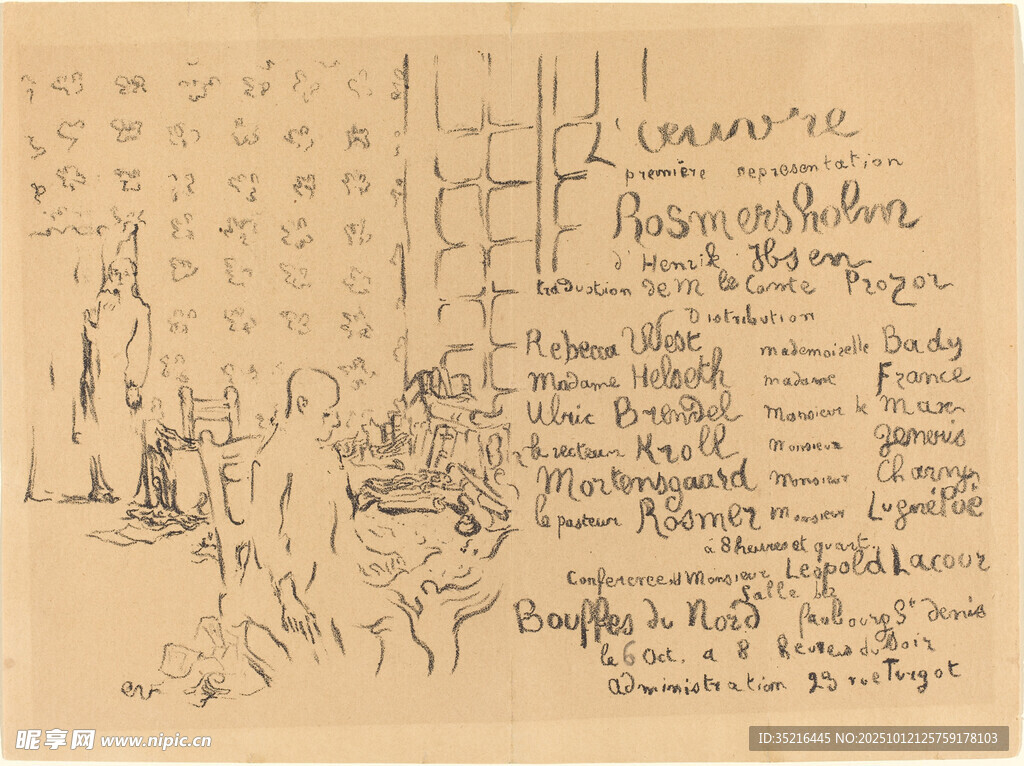 L'œuvre
première representation
Rosmersholm
d'Henrik Ibsen
traduction de M le Comte Prozor
Distribution
Rebecca West mademoiselle Bady
Madame Helseth madame France
Ulric Brendel Monsieur de Max
le recteur Kroll Monsieur
Mortensgaard Monsieur Charny
le pasteur Rosmer Monsieur Lugné Poë
à 8 heures et quart.
Conference Monsieur Leopold Lacour
Salle des
Bouffes du Nord faubourg St denis
le 6 Oct. a 8 heures du Soir
administration 23 rue Turgot
昵享网 www.nipic.cn
ID:35216445 NO:20251012125759178103